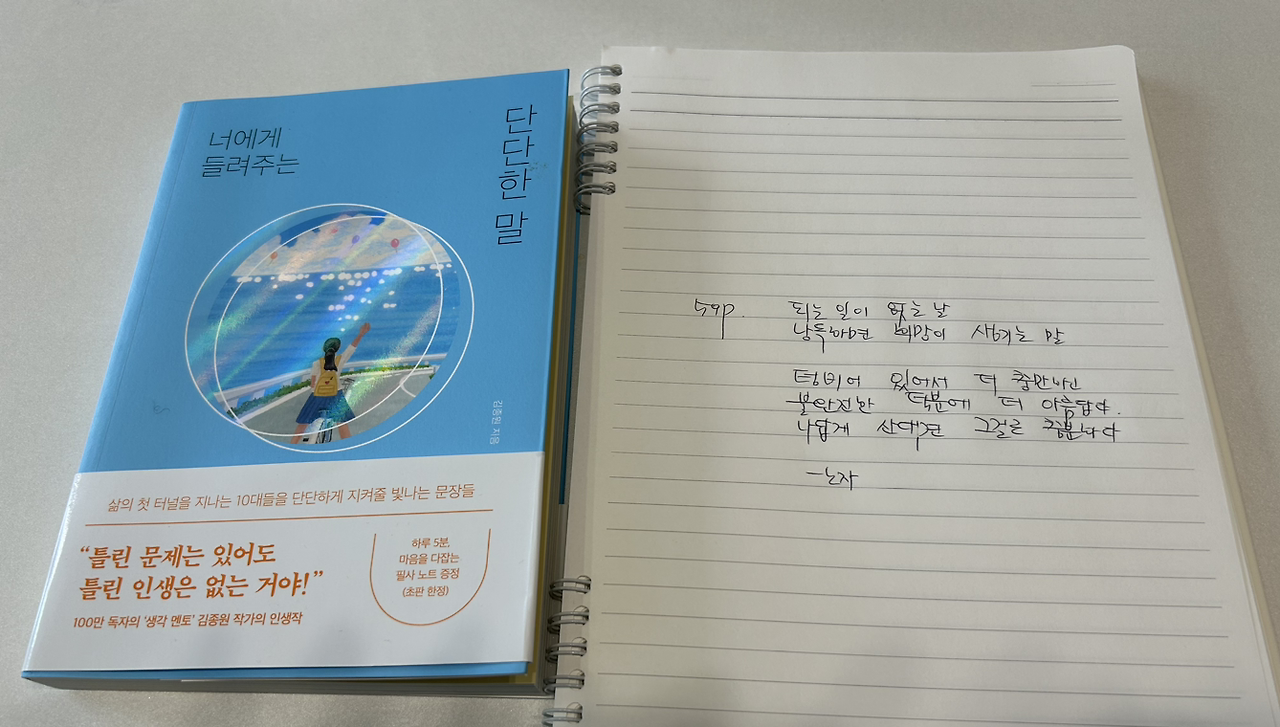 너에게
들려주는
단단한 말
김종원 지음
삶의 첫 터널을 지나는 10대들을 단단하게 지켜줄 빛나는 문장들
“틀린 문제는 있어도
틀린 인생은 없는 거야!”
100만 독자의 ‘생각 멘토’ 김종원 작가의 인생작
하루 5분,
마음을 다잡는
필사 노트 증정
(초판 한정)
59p. 되는 일이 없는 날
낭독하면 희망이 새겨지는 말
텅 비어 있어서 더 충만하고
불완전한 덕분에 더 아름답다.
나답게 산다면 그걸로 충분하다
-노자